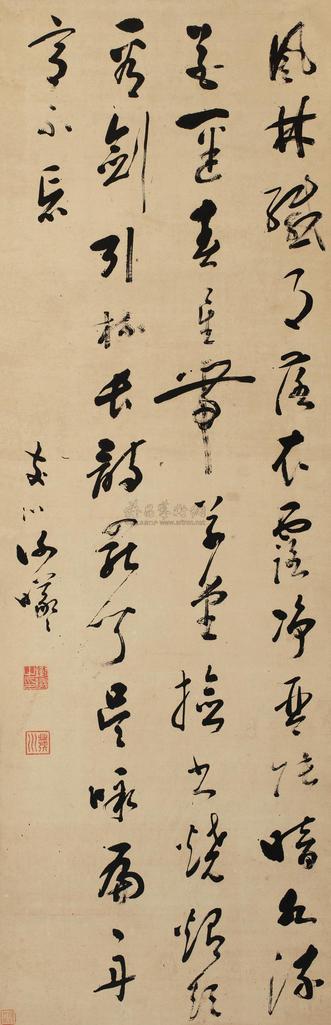 風林纖月落衣露淨琴張暗水流
花逕春星帶草堂檢書燒燭短
看劍引杯長詩罷聞吳詠扁舟
意不忘